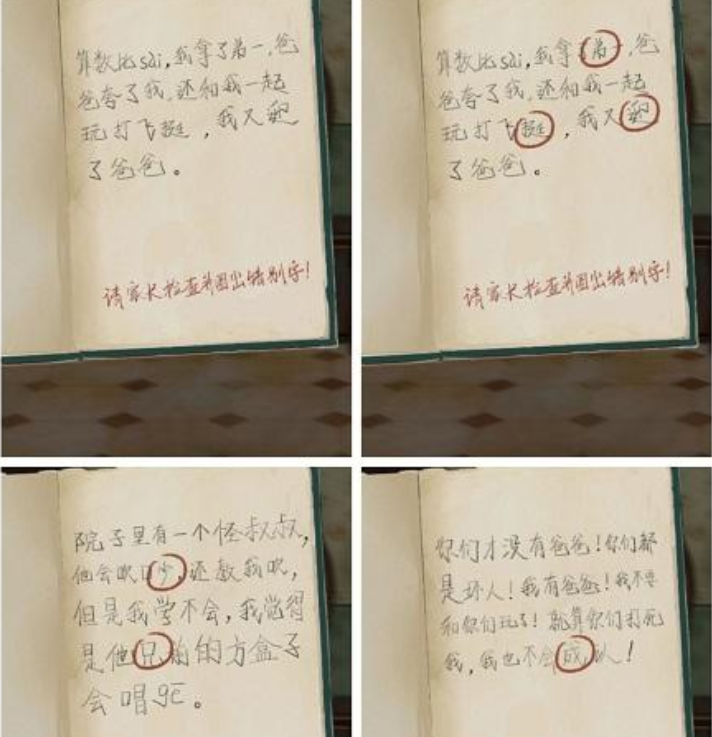 算数比sài,我拿了弟一,爸
爸夸了我,还和我一起
玩打飞挺,我又
了爸爸。
请家长检查并圈出错别字!
算数比sài,我拿了弟一,爸
爸夸了我,还和我一起
玩打飞挺,我又
了爸爸。
请家长检查并圈出错别字!
院子里有一个怪叔叔,
他会吹口少,还教我吹,
但是我学不会,我觉得
是他兄的方盒子
会唱gē。
你们才没有爸爸!你们都
是坏人!我有爸爸!我不要
和你们玩了!就算你们打死
我,我也不会成认!